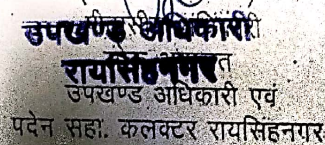 उपखण्ड अधिकारी
रायसिंहनगर
उपखण्ड अधिकारी एवं
पदेन सहा. कलक्टर रायसिंहनगर